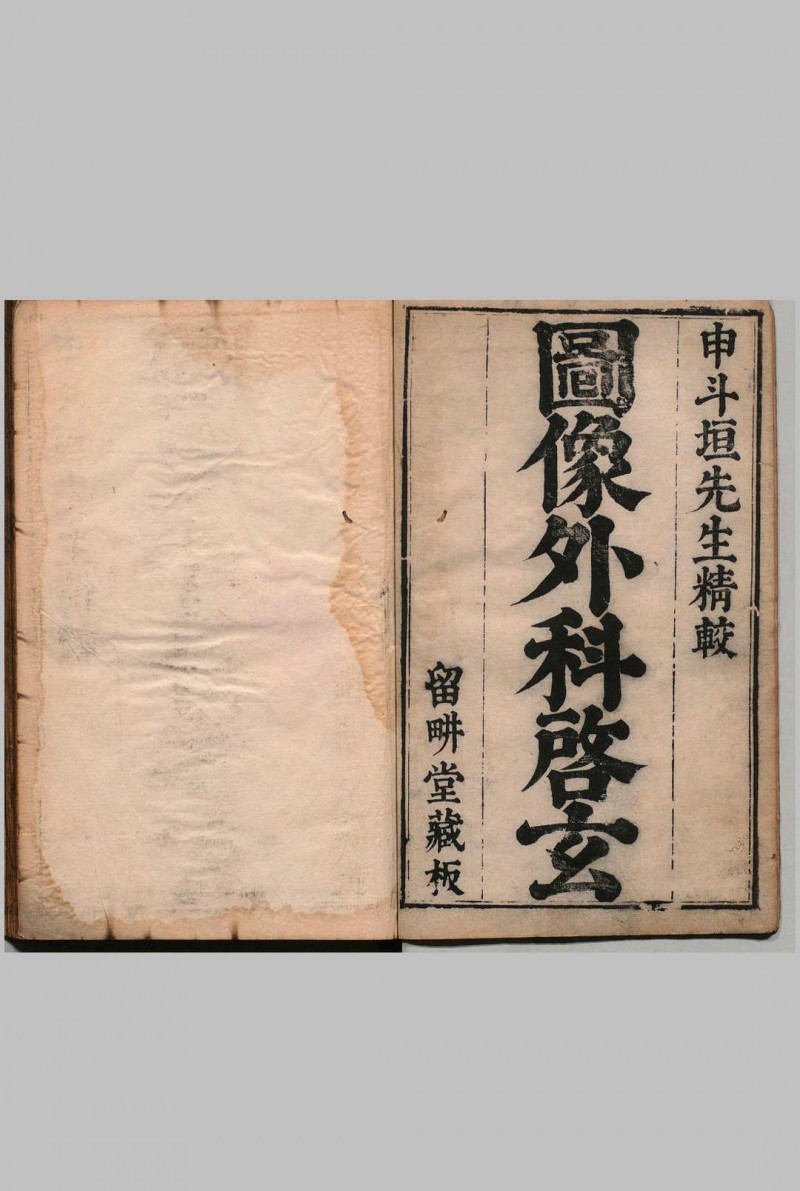 申斗垣先生精較
圖像外科啓玄
留畊堂藏板